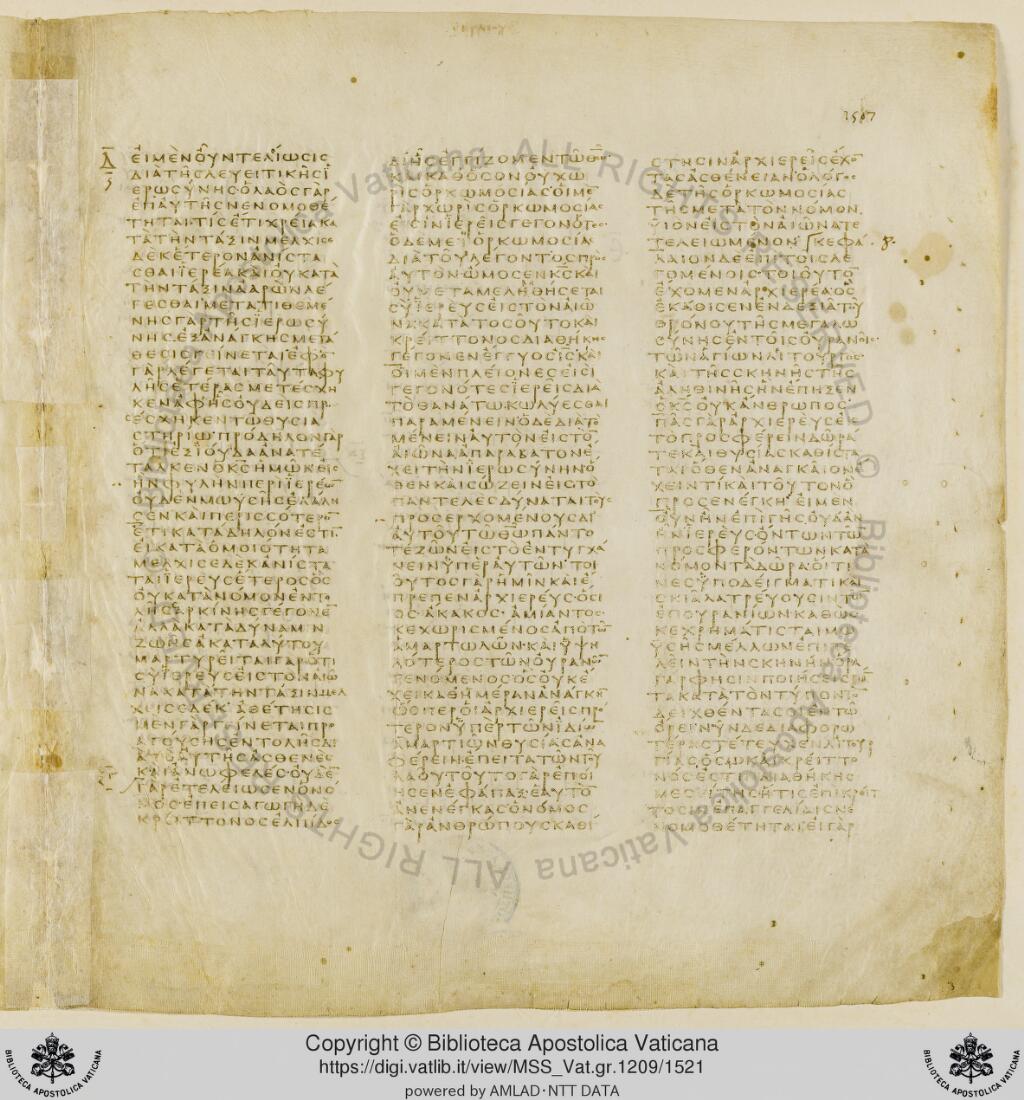 1507
Δ
ΕΙΜΕΝΟΥΝΤΕΛΙΩϹΙϹ
ΔΙΑΤΗϹΛΕΥΕΙΤΙΚΗϹΪ
ΕΡΩϹΥΝΗϹΟΛΑΟϹΓΑΡ
ΕΠΑΥΤΗϹΝΕΝΟΜΟΘΕ
ΤΗΤΑΙΤΙϹΕΤΙΧΡΕΙΑΚΑ
ΤΑΤΗΝΤΑΞΙΝΜΕΛΧΙϹΕ
ΔΕΚΕΤΕΡΟΝΑΝΙϹΤΑ
ϹΘΑΙΪΕΡΕΑΚΑΙΟΥΚΑΤΑ
ΤΗΝΤΑΞΙΝΑΑΡΩΝΛΕ
ΓΕϹΘΑΙΜΕΤΑΤΙΘΕΜΕ
ΝΗϹΓΑΡΤΗϹΪΕΡΩϹΥ
ΝΗϹΕΞΑΝΑΓΚΗϹΜΕΤΑ
ΘΕϹΙϹΓΕΙΝΕΤΑΙΕΦΟ
ΓΑΡΛΕΓΕΤΑΙΤΑΥΤΑΦΥ
ΛΗϹΕΤΕΡΑϹΜΕΤΕϹΧΗ
ΚΕΝΑΦΗϹΟΥΔΕΙϹΠΡΟ
ΕϹΧΗΚΕΝΤΩΘΥϹΙΑ
ϹΤΗΡΙΩΠΡΟΔΗΛΟΝΓΑΡ
ΟΤΙΕΞΙΟΥΔΑΑΝΑΤΕ
ΤΑΛΚΕΝΟΚϹΗΜΩΝΕΙϹ
ΗΝΦΥΛΗΝΠΕΡΙΪΕΡΕΩΝ
ΟΥΔΕΝΜΩΥϹΗϹΕΛΑΛΗ
ϹΕΝΚΑΙΠΕΡΙϹϹΟΤΕΡΟΝ
ΕΤΙΚΑΤΑΔΗΛΟΝΕϹΤΙΝ
ΕΙΚΑΤΑΟΜΟΙΟΤΗΤΑ
ΜΕΛΧΙϹΕΔΕΚΑΝΙϹΤΑ
ΤΑΙΪΕΡΕΥϹΕΤΕΡΟϹΟϹ
ΟΥΚΑΤΑΝΟΜΟΝΕΝΤΟ
ΛΗϹϹΑΡΚΙΝΗϹΓΕΓΟΝΕ
ΑΛΛΑΚΑΤΑΔΥΝΑΜΙΝ
ΖΩΗϹΑΚΑΤΑΛΥΤΟΥ
ΜΑΡΤΥΡΕΙΤΑΙΓΑΡΟΤΙ
ϹΥΪΕΡΕΥϹΕΙϹΤΟΝΑΙΩ
ΝΑΚΑΤΑΤΗΝΤΑΞΙΝΜΕΛ
ΧΙϹΕΔΕΚ ΑΘΕΤΗϹΙϹ
ΜΕΝΓΑΡΓΕΙΝΕΤΑΙΠΡΟ
ΑΓΟΥϹΗϹΕΝΤΟΛΗϹΔΙ
ΑΤΟΑΥΤΗϹΑϹΘΕΝΕϹ
ΚΑΙΑΝΩΦΕΛΕϹΟΥΔΕ
ΓΑΡΕΤΕΛΕΙΩϹΕΝΟΝΟ
ΜΟϹΕΠΕΙϹΑΓΩΓΗΔΕ
ΚΡΕΙΤΤΟΝΟϹΕΛΠΙΔΟϹ
ΔΙΗϹΕΓΓΙΖΟΜΕΝΤΩΘΩ
ΚΑΙΚΑΘΟϹΟΝΟΥΧΩ
ΡΙϹΟΡΚΩΜΟϹΙΑϹΟΙΜΕ
ΓΑΡΧΩΡΙϹΟΡΚΩΜΟϹΙΑϹ
ΕΙϹΙΝΪΕΡΕΙϹΓΕΓΟΝΟΤΕϹ
ΟΔΕΜΕΤΑΟΡΚΩΜΟϹΙΑϹ
ΔΙΑΤΟΥΛΕΓΟΝΤΟϹΠΡΟϹ
ΑΥΤΟΝΩΜΟϹΕΝΚϹΚΑΙ
ΟΥΜΕΤΑΜΕΛΗΘΗϹΕΤΑΙ
ϹΥΪΕΡΕΥϹΕΙϹΤΟΝΑΙΩ
ΝΑΚΑΤΑΤΟϹΟΥΤΟΚΑΙ
ΚΡΕΙΤΤΟΝΟϹΔΙΑΘΗΚΗϹ
ΓΕΓΟΝΕΝΕΓΓΥΟϹΙϹΚΑΙ
ΟΙΜΕΝΠΛΕΙΟΝΕϹΕΙϹΙ
ΓΕΓΟΝΟΤΕϹΪΕΡΕΙϹΔΙΑ
ΤΟΘΑΝΑΤΩΚΩΛΥΕϹΘΑΙ
ΠΑΡΑΜΕΝΕΙΝΟΔΕΔΙΑΤΟ
ΜΕΝΕΙΝΑΥΤΟΝΕΙϹΤΟΝ
ΑΙΩΝΑΑΠΑΡΑΒΑΤΟΝΕ
ΧΕΙΤΗΝΪΕΡΩϹΥΝΗΝΟ
ΘΕΝΚΑΙϹΩΖΕΙΝΕΙϹΤΟ
ΠΑΝΤΕΛΕϹΔΥΝΑΤΑΙΤΟΥϹ
ΠΡΟϹΕΡΧΟΜΕΝΟΥϹΔΙ
ΑΥΤΟΥΤΩΘΩΠΑΝΤΟ
ΤΕΖΩΝΕΙϹΤΟΕΝΤΥΓΧΑ
ΝΕΙΝΫΠΕΡΑΥΤΩΝ ΤΟΙ
ΟΥΤΟϹΓΑΡΗΜΙΝΚΑΙΕ
ΠΡΕΠΕΝΑΡΧΙΕΡΕΥϹΟϹΙ
ΟϹ ΑΚΑΚΟϹ ΑΜΙΑΝΤΟϹ
ΚΕΧΩΡΙϹΜΕΝΟϹΑΠΟΤΩΝ
ΑΜΑΡΤΩΛΩΝ ΚΑΙΫΨΗ
ΛΟΤΕΡΟϹΤΩΝΟΥΡΑΝΩΝ
ΓΕΝΟΜΕΝΟϹΟϹΟΥΚΕ
ΧΕΙΚΑΘΗΜΕΡΑΝΑΝΑΓΚΗΝ
ΩϹΠΕΡΟΙΑΡΧΙΕΡΕΙϹΠΡΟ
ΤΕΡΟΝΫΠΕΡΤΩΝΙΔΙΩΝ
ΑΜΑΡΤΙΩΝΘΥϹΙΑϹΑΝΑ
ΦΕΡΕΙΝΕΠΕΙΤΑΤΩΝΤΟΥ
ΛΑΟΥΤΟΥΤΟΓΑΡΕΠΟΙ
ΗϹΕΝΕΦΑΠΑΞΕΑΥΤΟΝ
ΑΝΕΝΕΓΚΑϹΟΝΟΜΟϹ
ΓΑΡΑΝΘΡΩΠΟΥϹΚΑΘΙ
ϹΤΗϹΙΝΑΡΧΙΕΡΕΙϹΕΧΟΝ
ΤΑϹΑϹΘΕΝΕΙΑΝΟΛΟΓΟϹ
ΔΕΤΗϹΟΡΚΩΜΟϹΙΑϹ
ΤΗϹΜΕΤΑΤΟΝΝΟΜΟΝ
ΥΙΟΝΕΙϹΤΟΝΑΙΩΝΑΤΕ
ΤΕΛΕΙΩΜΕΝΟΝ ΚΕΦΑ
ΛΑΙΟΝΔΕΕΠΙΤΟΙϹΛΕ
ΓΟΜΕΝΟΙϹΤΟΙΟΥΤΟΝ
ΕΧΟΜΕΝΑΡΧΙΕΡΕΑΟϹ
ΕΚΑΘΙϹΕΝΕΝΔΕΞΙΑΤΟΥ
ΘΡΟΝΟΥΤΗϹΜΕΓΑΛΩ
ϹΥΝΗϹΕΝΤΟΙϹΟΥΡΑΝΟΙϹ
ΤΩΝΑΓΙΩΝΛΙΤΟΥΡΓΟϹ
ΚΑΙΤΗϹϹΚΗΝΗϹΤΗϹ
ΑΛΗΘΙΝΗϹΗΝΕΠΗΞΕΝ
ΟΚϹΟΥΚΑΝΘΡΩΠΟϹ
ΠΑϹΓΑΡΑΡΧΙΕΡΕΥϹΕΙϹ
ΤΟΠΡΟϹΦΕΡΕΙΝΔΩΡΑ
ΤΕΚΑΙΘΥϹΙΑϹΚΑΘΙϹΤΑ
ΤΑΙΟΘΕΝΑΝΑΓΚΑΙΟΝΕ
ΧΕΙΝΤΙΚΑΙΤΟΥΤΟΝΟ
ΠΡΟϹΕΝΕΓΚΗ ΕΙΜΕΝ
ΟΥΝΗΝΕΠΙΓΗϹΟΥΔΑΝ
ΗΝΪΕΡΕΥϹΟΝΤΩΝΤΩΝ
ΠΡΟϹΦΕΡΟΝΤΩΝΚΑΤΑ
ΝΟΜΟΝΤΑΔΩΡΑΟΙΤΙ
ΝΕϹΫΠΟΔΕΙΓΜΑΤΙΚΑΙ
ϹΚΙΑΛΑΤΡΕΥΟΥϹΙΝΤΩΝ
ΕΠΟΥΡΑΝΙΩΝΚΑΘΩϹ
ΚΕΧΡΗΜΑΤΙϹΤΑΙΜΩ
ΥϹΗϹΜΕΛΛΩΝΕΠΙΤΕ
ΛΕΙΝΤΗΝϹΚΗΝΗΝΟΡΑ
ΓΑΡΦΗϹΙΝΠΟΙΗϹΕΙϹΠΑΝ
ΤΑΚΑΤΑΤΟΝΤΥΠΟΝΤΟΝ
ΔΕΙΧΘΕΝΤΑϹΟΙΕΝΤΩ
ΟΡΕΙΝΥΝΔΕΔΙΑΦΟΡΩ
ΤΕΡΑϹΤΕΤΕΥΧΕΝΛΙΤΟΥΡ
ΓΙΑϹΟϹΩΚΑΙΚΡΕΙΤΤΟ
ΝΟϹΕϹΤΙΝΔΙΑΘΗΚΗϹ
ΜΕϹΙΤΗϹΗΤΙϹΕΠΙΚΡΕΙΤ
ΤΟϹΙΝΕΠΑΓΓΕΛΙΑΙϹΝΕ
ΝΟΜΟΘΕΤΗΤΑΙΕΙΓΑΡ
Copyright © Biblioteca Apostolica Vaticana
https://digi.vatlib.it/view/MSS_Vat.gr.1209/1521
powered by AMLAD·NTT DATA